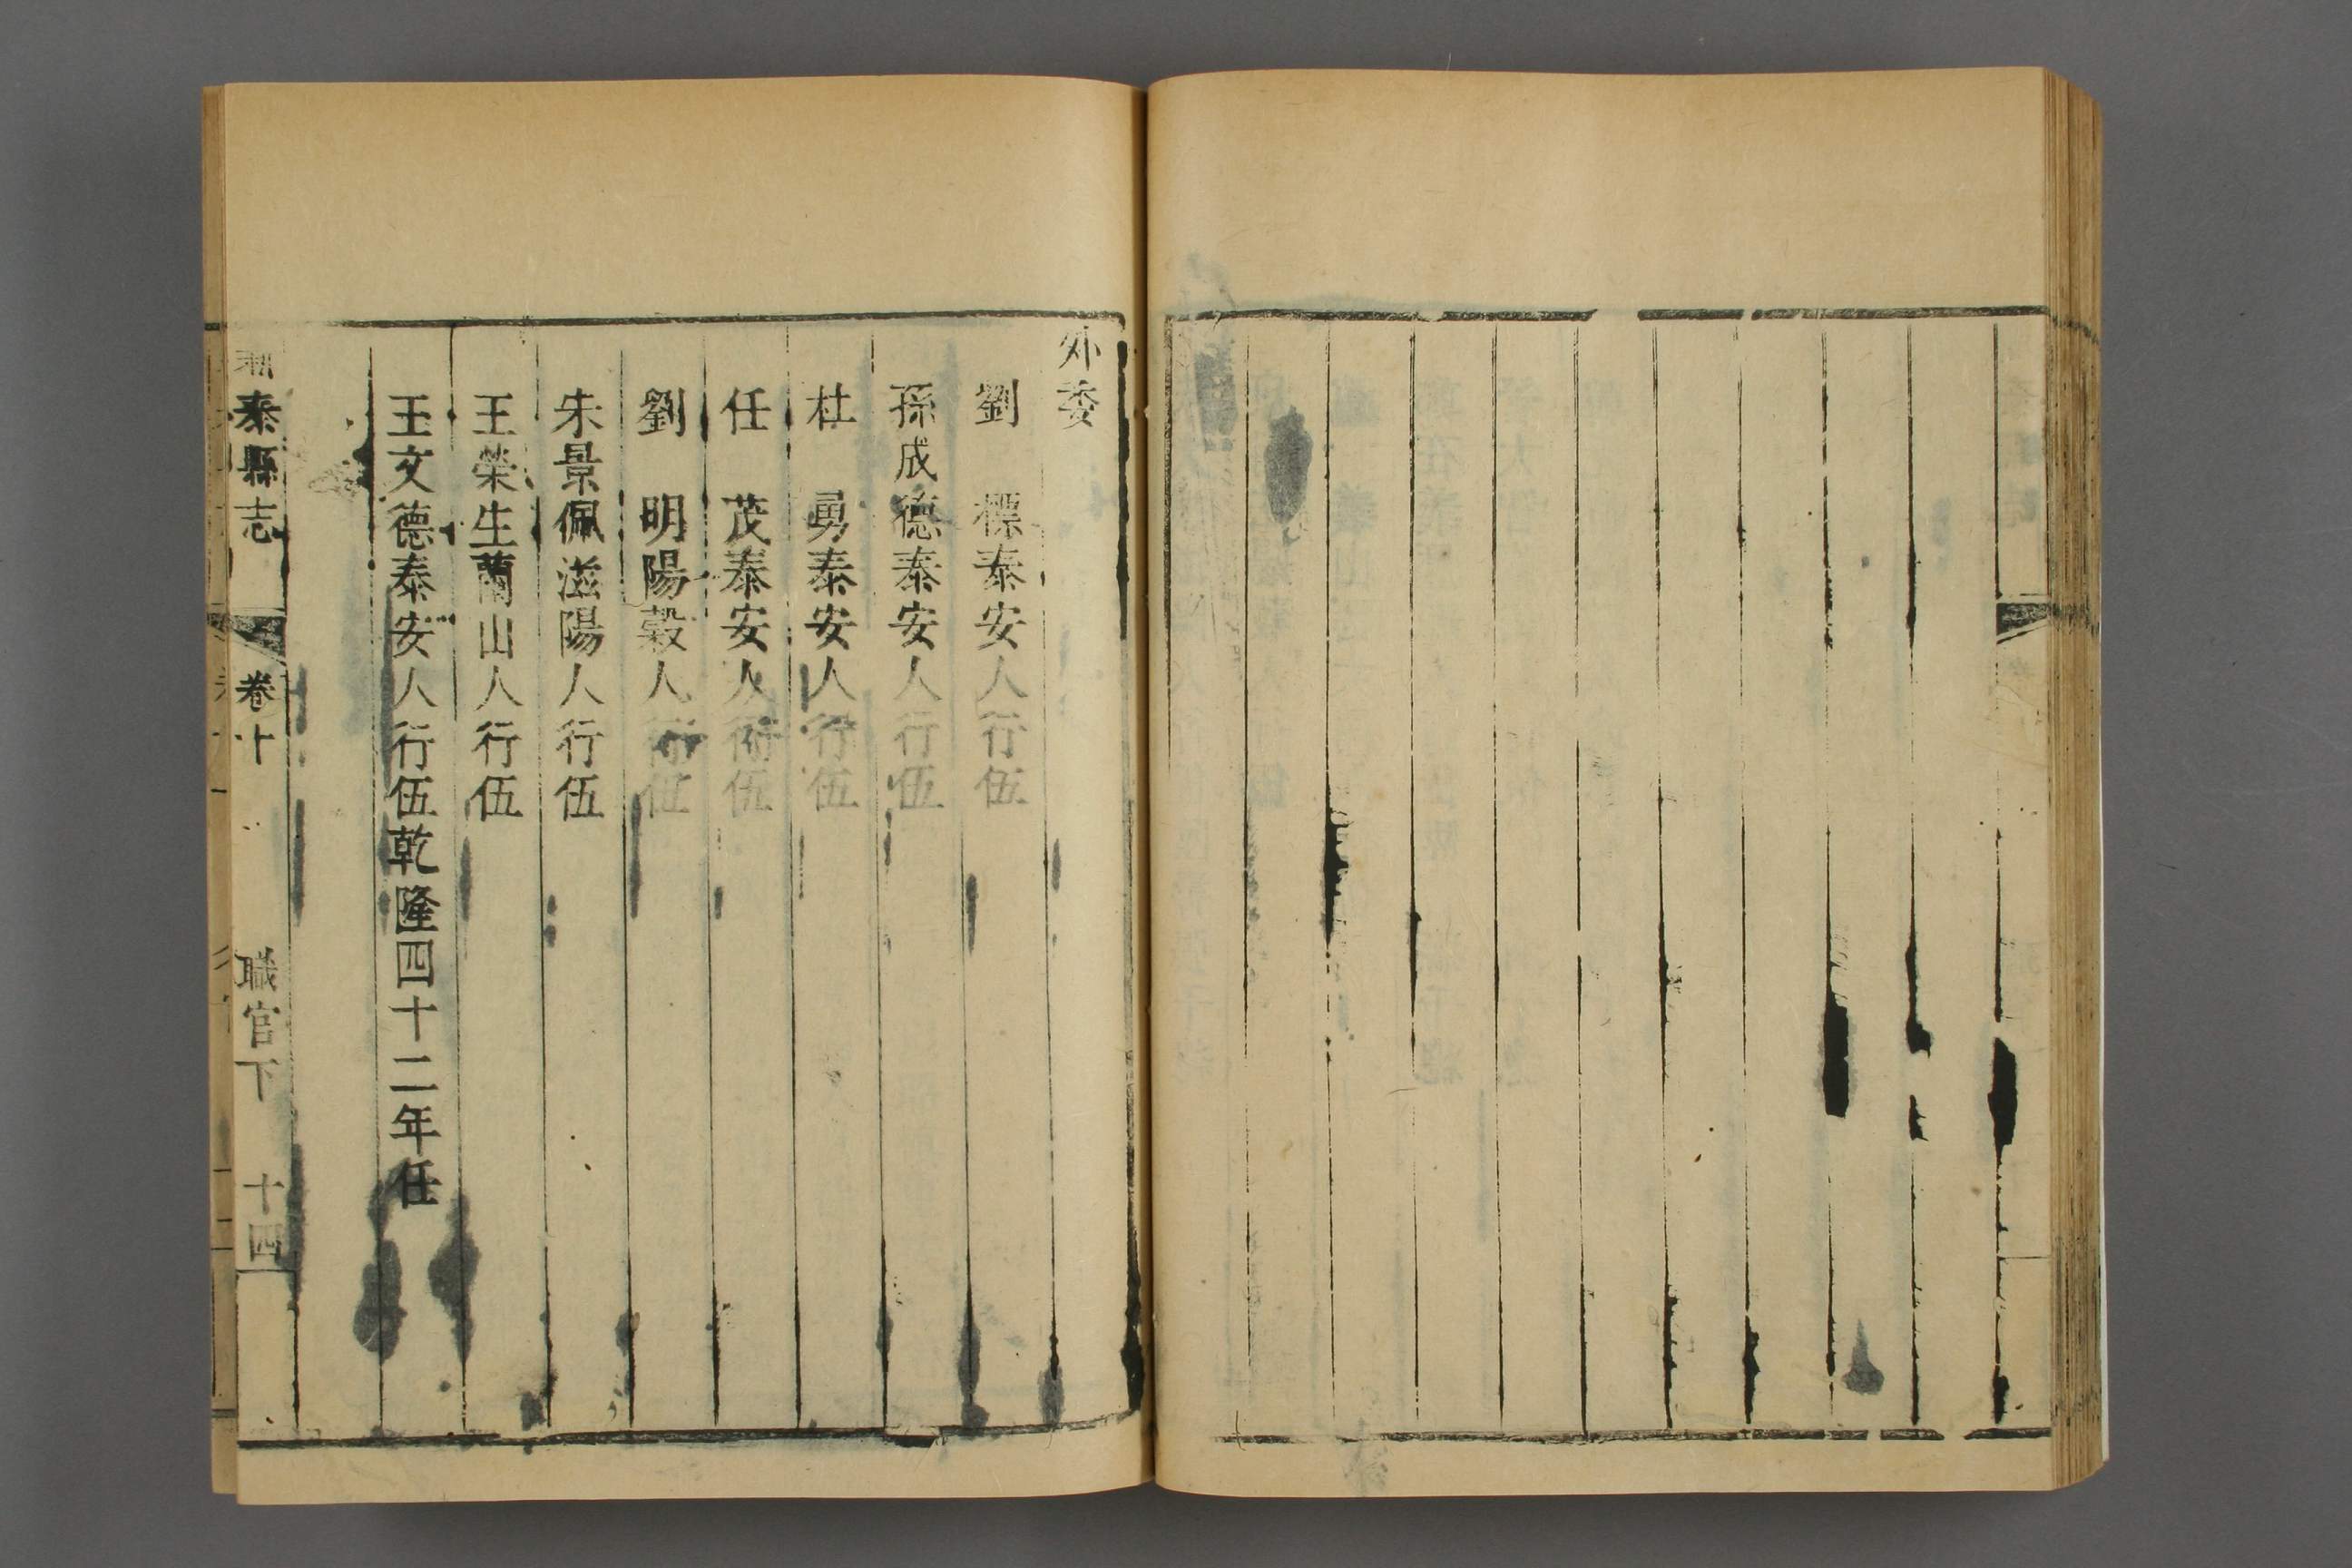 外委
劉　標泰安人行伍
孫成德泰安人行伍
杜　勇泰安人行伍
任　茂泰安人行伍
劉　明陽榖人行伍
朱景佩滋陽人行伍
王榮生蘭山人行伍
王文德泰安人行伍乾隆四十二年任
泰縣志　卷十　職官下　十四